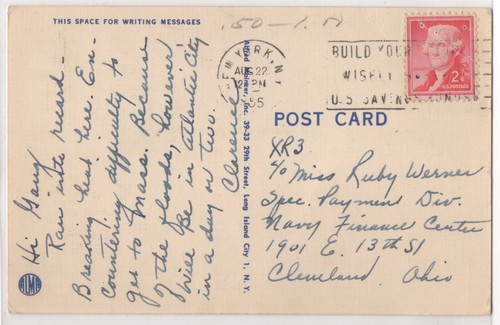 THIS SPACE FOR WRITING MESSAGES
.50 - 1.
Hi Gang
Ran into record-
Breaking heat here. En-
countering difficulty to
get to Mass. Because
of the floods, however
will be in atlantic City
in a day or two.
Clarence
Alfred Mainzer, Inc. 39-33 29th Street, Long Island City 1, N. Y.
ALMA
NEW YORK, N.Y.
AUG 22
PM
BUILD YOUR
WISELY
U.S. SAVINGS BONDS
2¢
U.S. POSTAGE
POST CARD
XR3
c/o Miss Ruby Werner
Spec. Payment Div.
Navy Finance Center
1901 E. 13th St
Cleveland, Ohio